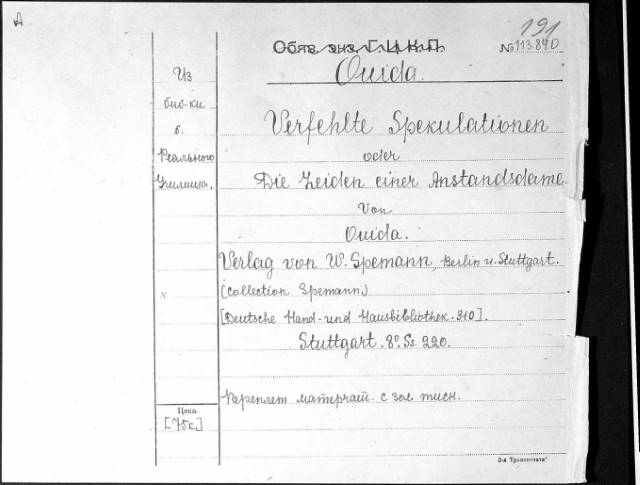 А
191
Обяз. экз. Г.Ц.К.П.
№ 113840
Ouida.
Из
биб-ки
б.
Реального
Училища.
Verfehlte Spekulationen
oder
Die Leiden einer Anstandsdame.
Von
Ouida.
Verlag von W. Spemann, Berlin u. Stuttgart.
(Collection Spemann.)
[Deutsche Hand- und Hausbibliothek. 310].
Stuttgart. 8°. Ss. 220.
Переплет матерчат. с зол. тисн.
Цена
[75 с.]